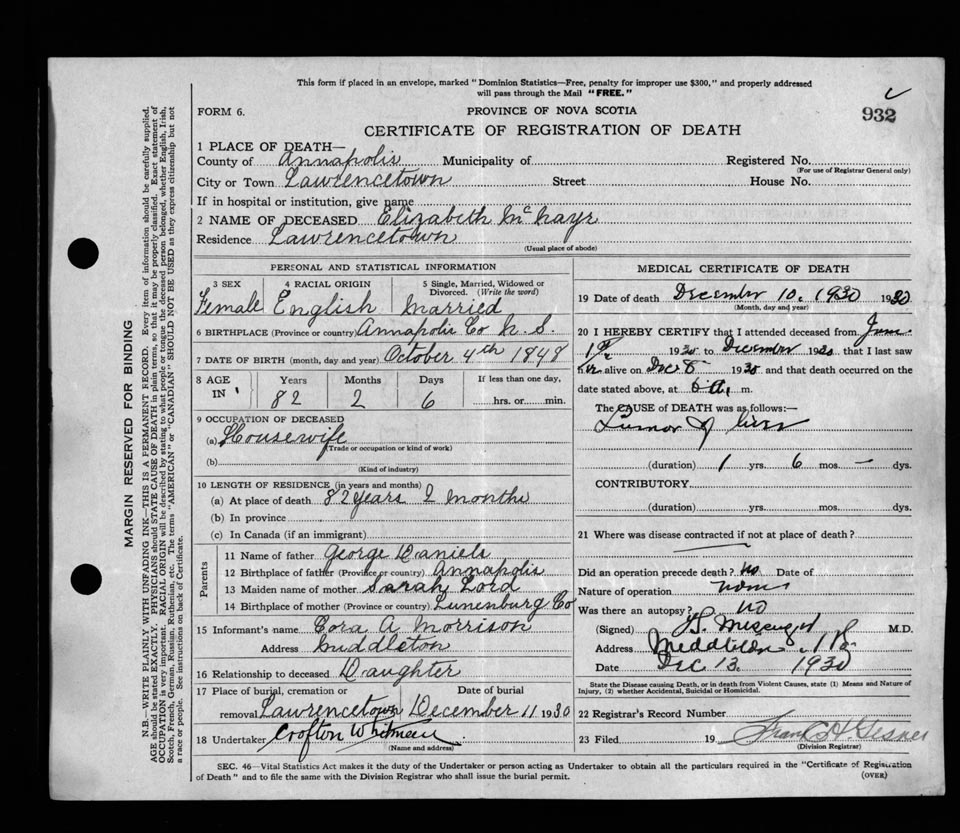 This form if placed in an envelope, marked "Dominion Statistics—Free, penalty for improper use $300," and properly addressed
will pass through the Mail "FREE."
932
FORM 6.
PROVINCE OF NOVA SCOTIA
CERTIFICATE OF REGISTRATION OF DEATH
1 PLACE OF DEATH—
County of Annapolis Municipality of Registered No.
(For use of Registrar General only)
City or Town Lawrencetown Street House No.
If in hospital or institution, give name
2 NAME OF DECEASED Elizabeth
Residence Lawrencetown
(Usual place of abode)
PERSONAL AND STATISTICAL INFORMATION
3 SEX 4 RACIAL ORIGIN 5 Single, Married, Widowed or Divorced. (Write the word)
Female English Married
6 BIRTHPLACE (Province or country) Annapolis Co N. S.
7 DATE OF BIRTH (month, day and year) October 4th 1848
8 AGE IN Years Months Days If less than one day,
82 2 6 hrs. or min.
9 OCCUPATION OF DECEASED
(a) Housewife
(Trade or occupation or kind of work)
(b)
(Kind of industry)
10 LENGTH OF RESIDENCE (in years and months)
(a) At place of death 82 years 2 months
(b) In province
(c) In Canada (if an immigrant)
Parents
11 Name of father George Daniels
12 Birthplace of father (Province or country) Annapolis
13 Maiden name of mother Sarah Lord
14 Birthplace of mother (Province or country) Lunenburg Co
15 Informant's name Cora A Morrison
Address Middleton
16 Relationship to deceased Daughter
17 Place of burial, cremation or Date of burial
removal Lawrencetown December 11 1930
18 Undertaker Crofton Whitman
(Name and address)
MEDICAL CERTIFICATE OF DEATH
19 Date of death December 10. 1930 1930
(Month, day and year)
20 I HEREBY CERTIFY that I attended deceased from June
1st 1930 to December 1930 that I last saw
her alive on Dec 8 1930 and that death occurred on the
date stated above, at 6 a. m.
The CAUSE OF DEATH was as follows:—
Tumor of liver
(duration) 1 yrs. 6 mos. — dys.
CONTRIBUTORY
(duration) yrs. mos. dys.
21 Where was disease contracted if not at place of death?
Did an operation precede death? No Date of
Nature of operation none
Was there an autopsy? no
(Signed) M.D.
Address Middleton N S
Date Dec 13. 1930
State the Disease causing Death, or in death from Violent Causes, state (1) Means and Nature of
Injury, (2) whether Accidental, Suicidal or Homicidal.
22 Registrar's Record Number
23 Filed 19 Frank H Gesner
(Division Registrar)
SEC. 46—Vital Statistics Act makes it the duty of the Undertaker or person acting as Undertaker to obtain all the particulars required in the "Certificate of Registration
of Death" and to file the same with the Division Registrar who shall issue the burial permit.
(OVER)
MARGIN RESERVED FOR BINDING
N.B.—WRITE PLAINLY WITH UNFADING INK—THIS IS A PERMANENT RECORD. Every item of information should be carefully supplied.
AGE should be stated EXACTLY. PHYSICIANS should STATE CAUSE OF DEATH in plain terms, so that it may be properly classified. Exact statement of
OCCUPATION is very important. RACIAL ORIGIN will be described by stating to what people or tongue the deceased person belonged, whether English, Irish,
Scotch, French, German, Russian, Ruthenian, etc. The terms "AMERICAN" or "CANADIAN" SHOULD NOT BE USED as they express citizenship but not
a race or people. See instructions on back of Certificate.